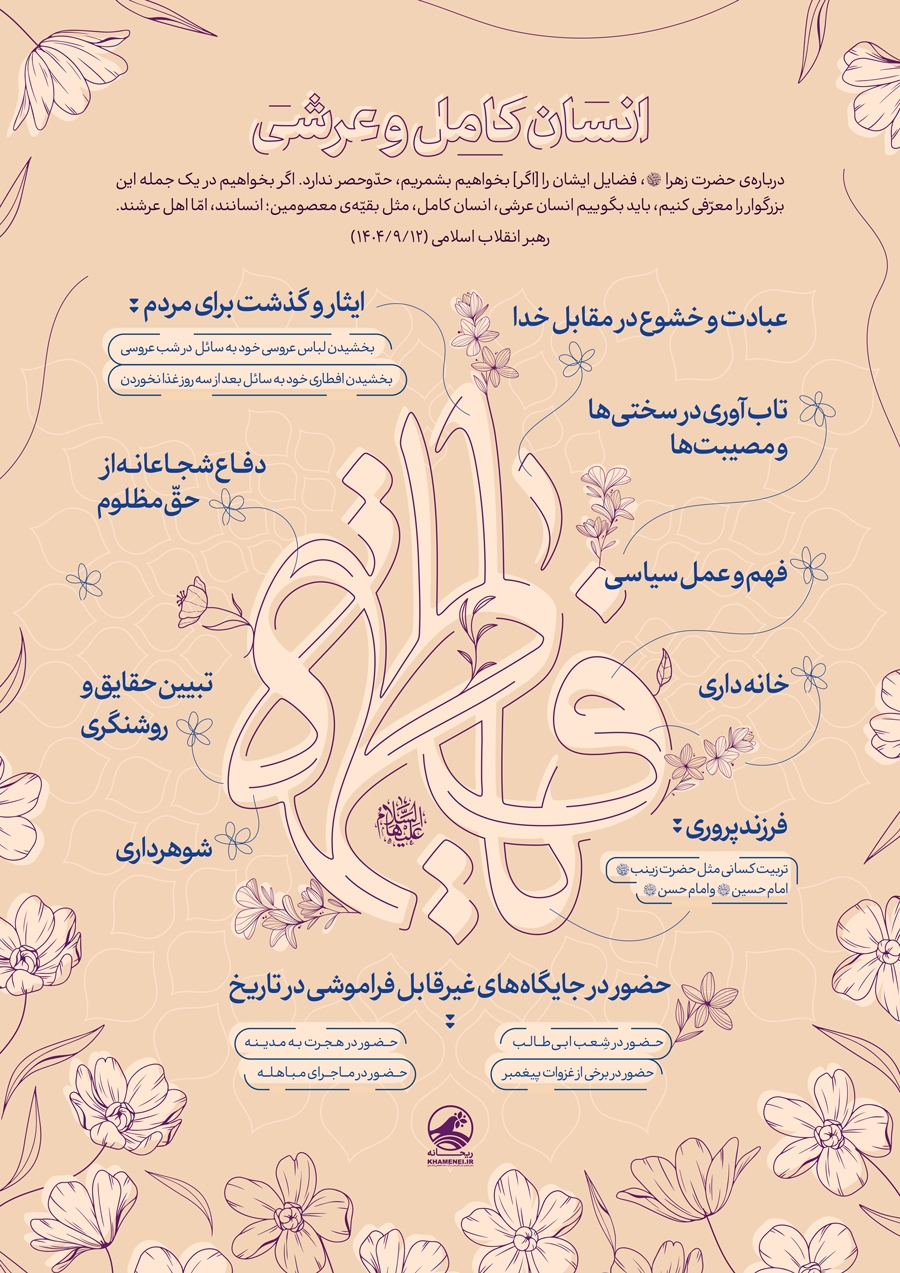 انسان کامل و عرشی
درباره‌ی حضرت زهرا، فضایل ایشان را [اگر] بخواهیم بشمریم، حدّوحصر ندارد. اگر بخواهیم در یک جمله این
بزرگوار را معرّفی کنیم، باید بگوییم انسان عرشی، انسان کامل، مثل بقیّه‌ی معصومین؛ انسانند، امّا اهل عرشند.
رهبر انقلاب اسلامی (۱۴۰۴/۹/۱۲)
عبادت و خشوع در مقابل خدا
تاب‌آوری در سختی‌ها
و مصیبت‌ها
فهم و عمل سیاسی
خانه‌داری
فرزندپروری
تربیت کسانی مثل حضرت زینب
امام حسین و امام حسن
ایثار و گذشت برای مردم
بخشیدن لباس عروسی خود به سائل در شب عروسی
بخشیدن افطاری خود به سائل بعد از سه روز غذا نخوردن
دفاع شجاعانه از
حقّ مظلوم
تبیین حقایق و
روشنگری
شوهرداری
فاطمه
السَّلام
علیها
حضور در جایگاه‌های غیرقابل فراموشی در تاریخ
حضور در شِعب ابی‌طالب
حضور در برخی از غزوات پیغمبر
حضور در هجرت به مدینه
حضور در ماجرای مباهله
ریحانه
KHAMENEI.IR